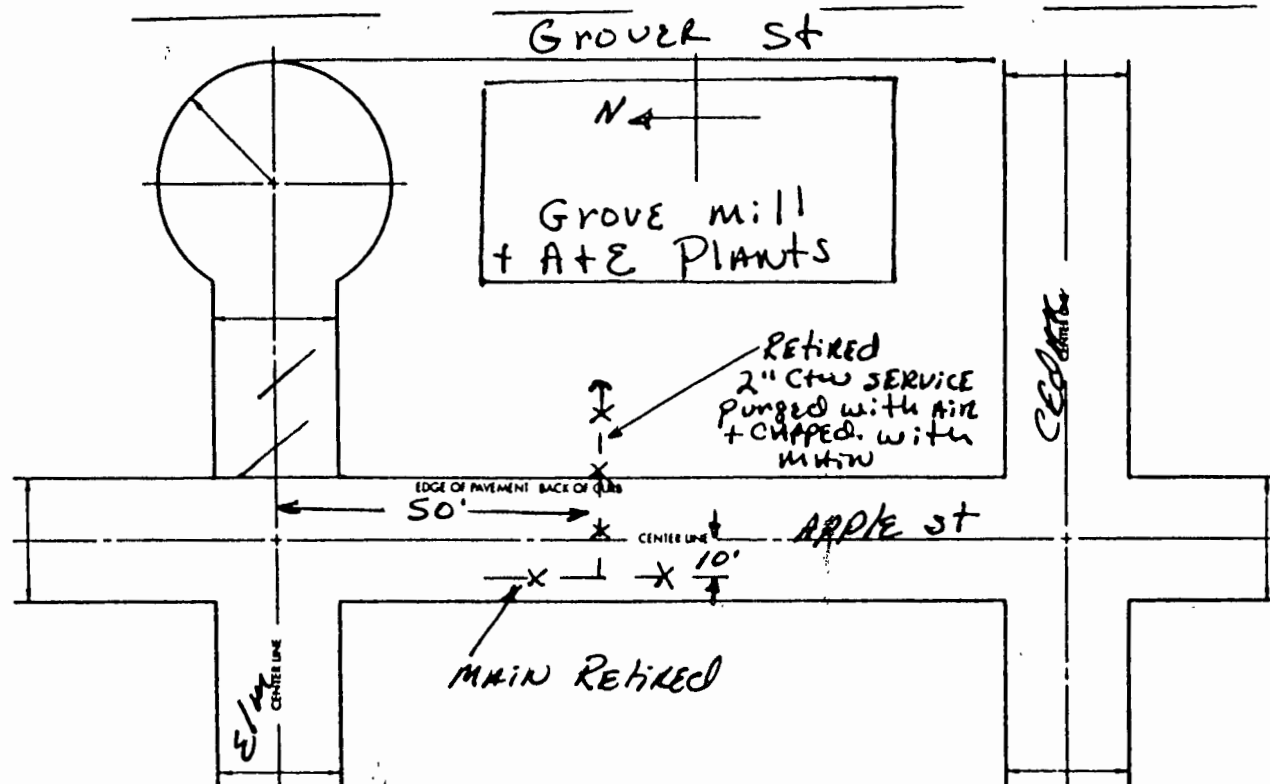 Grover St
N
Grove mill
+ A+E Plants
Retired
2" C+W SERVICE
purged with Air
+ CAPPED. with
MAIN
CEDAR
CENTER LINE
EDGE OF PAVEMENT BACK OF CURB
50'
CENTER LINE
APPLE st
10'
MAIN Retired
Elm
CENTER LINE